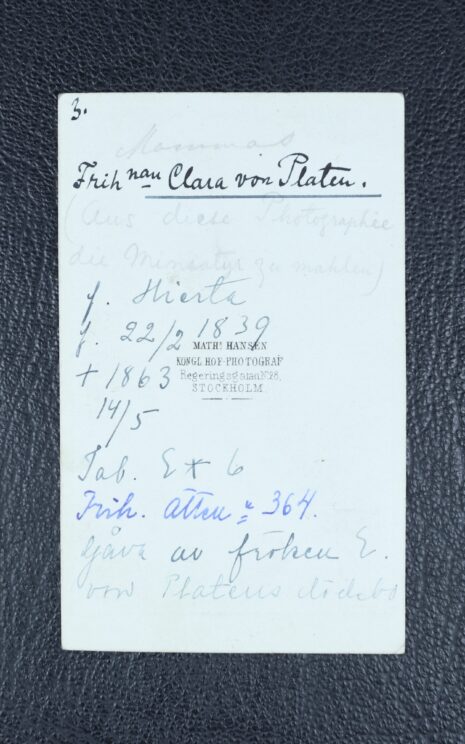 3.
Mammas
Frihnan Clara von Platen.
(Aus diese Photographie
die Miniatyr zu mahlen)
f. Hierta
f. 22/2 1839
MATHS HANSEN
KONGL HOF-PHOTOGRAF
† 1863
Regeringsgatan No 28.
STOCKHOLM.
14/5
Tab. E * 6
Frih. ätten No 364.
Gåva av fröken E.
von Platens dödsbo